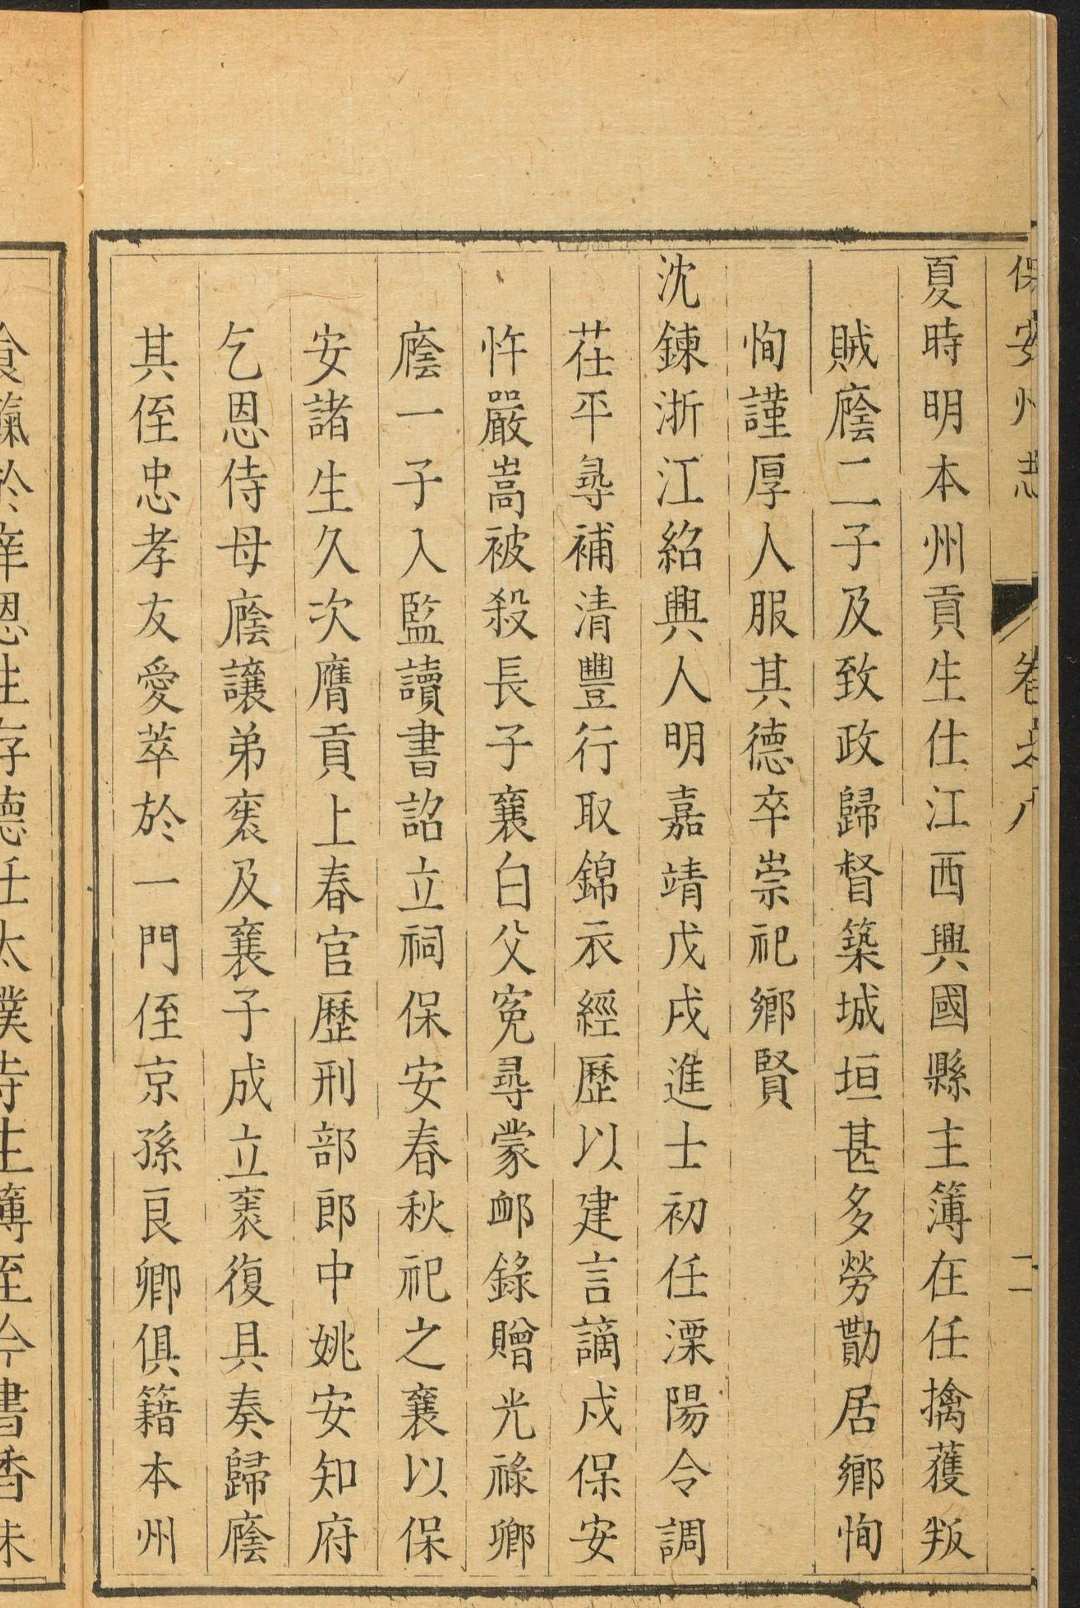 保安州志 卷之八 二
夏時明本州貢生仕江西興國縣主簿在任擒獲叛
賊廕二子及致政歸督築城垣甚多勞勩居鄉恂
恂謹厚人服其德卒崇祀鄉賢
沈鍊浙江紹興人明嘉靖戊戌進士初任溧陽令調
茌平尋補清豐行取錦衣經歷以建言謫戍保安
忤嚴嵩被殺長子襄白父寃尋蒙卹錄贈光祿鄉
廕一子入監讀書詔立祠保安春秋祀之襄以保
安諸生久次膺貢上春官歷刑部郎中姚安知府
乞恩侍母廕讓弟袠及襄子成立袠復具奏歸廕
其侄忠孝友愛萃於一門侄京孫良卿俱籍本州
於庠恩生存德任太僕寺主簿至今書香未